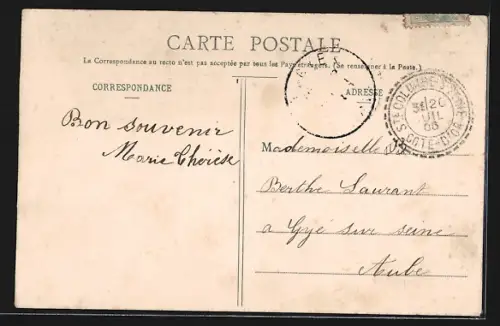 CARTE POSTALE
La Correspondance au recto n'est pas acceptée par tous les Pays étrangers. (Se renseigner à la Poste.)
CORRESPONDANCE
ADRESSE
STE COLOMBE S
31 20
JUIL
05
COTE-D'OR
Bon souvenir
Marie Thérèse
Mademoiselle
Berthe Laurant
a Gyé sur seine
Aube